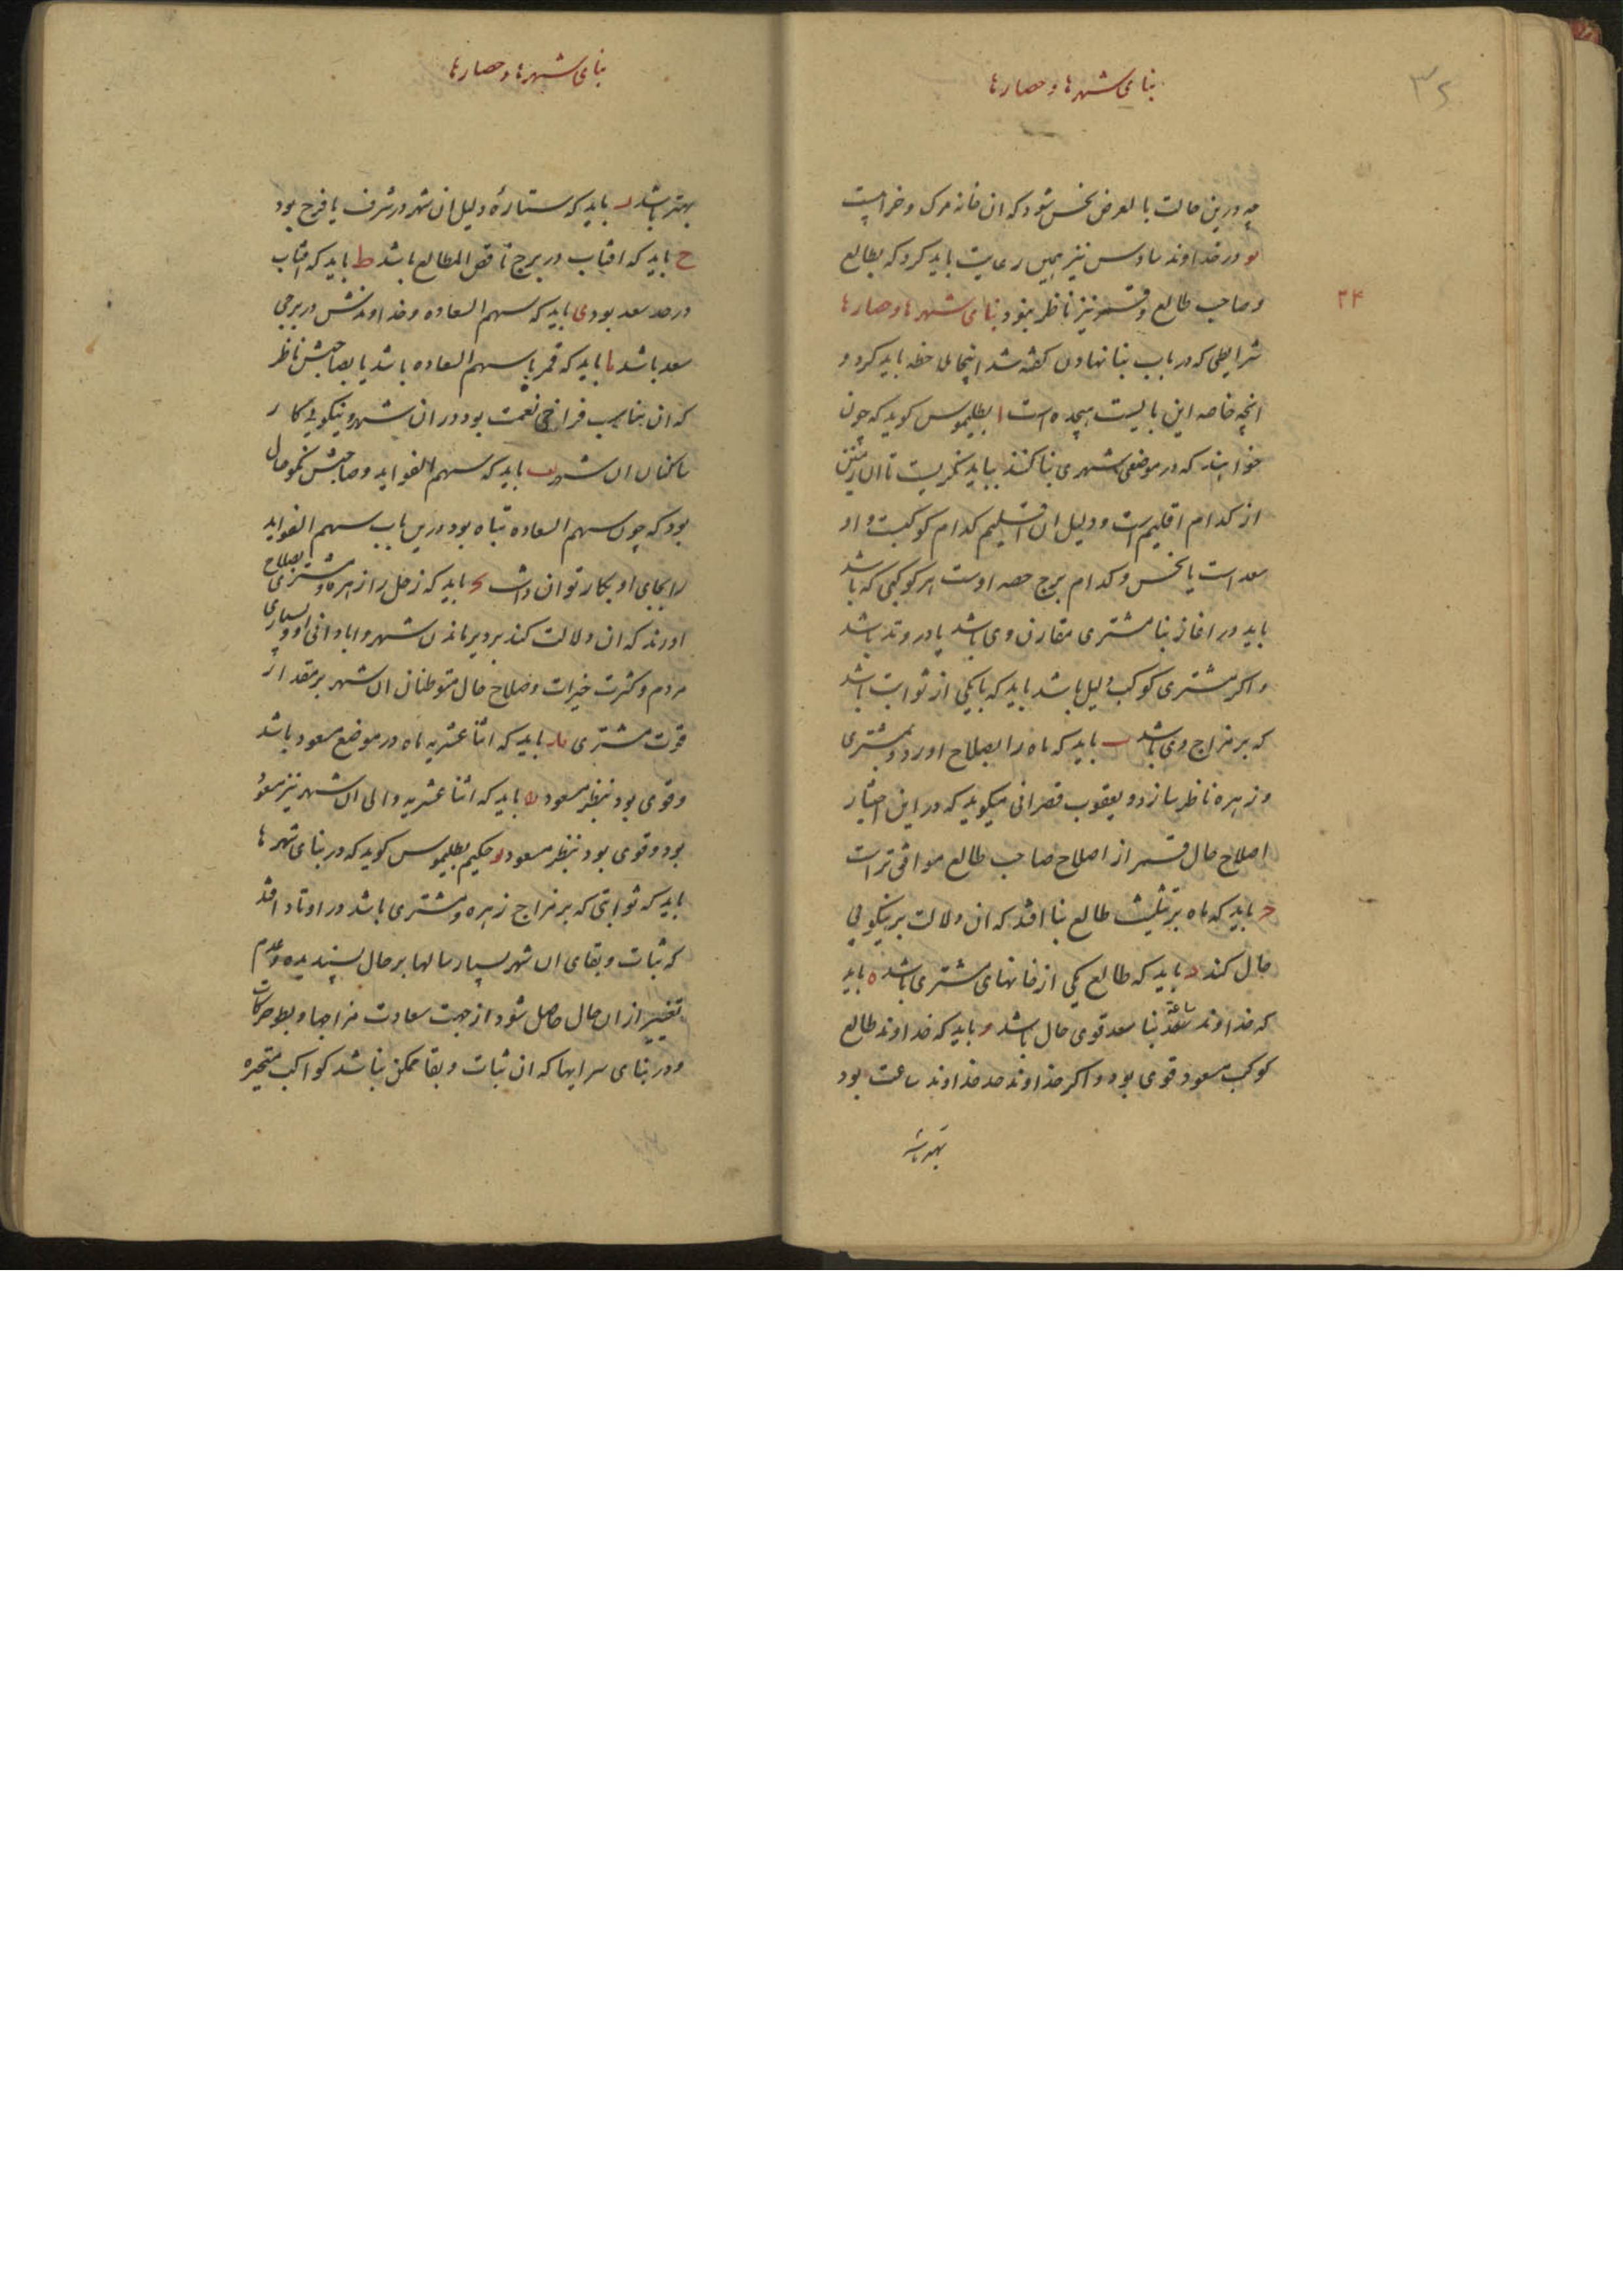 بنای شهرها و حصارها
۳۵
چه درین حالت بالعرض نحس شود که ان خانه مرک و خرابیست
یو و در خداوند سادس نیز همین رعایت باید کرد که بطالع
و صاحب طالع و قمر نیز ناظر نبود بنای شهرها و حصارها
۳۴
شرایطی که در باب بنا نهادن کفته شد اینجا ملاحظه باید کرد و
انچه خاصه این بابست هجده است ا بطلیموس کوید که چون
خواهند که در موضعی شهری بنا کنند بباید نکریست تا ان زمین
از کدام اقلیم است و دلیل ان اقلیم کدام کوکبست و او
سعد است یا نحس و کدام برج حصه اوست هر کوکبی که باشد
باید در اغاز بنا مشتری مقارن وی باشد یا در وتد باشد
و اکر مشتری کوکب دلیل باشد باید که با یکی از ثوابت باشد
که بر مزاج وی باشد ب باید که ماه را بصلاح اورد و بمشتری
و زهره ناظر سازد و یعقوب قصرانی میکوید که در این اختیار
اصلاح حال قمر از اصلاح صاحب طالع موافق تر است
ج باید که ماه بتثلیث طالع بنا افتد که ان دلالت بر نیکویی
حال کند د باید که طالع یکی از خانهای مشتری باشد ه باید
که خداوند ساعت بنا سعد قوی حال باشد و باید که خداوند طالع
کوکب مسعود قوی بود و اکر خداوند حد خداوند ساعت بود
بهتر باشد
بنای شهرها و حصارها
بهتر باشد ز باید که ستارهٔ دلیل ان شهر در شرف یا فرح بود
ح باید که افتاب در برج ناقص المطالع باشد ط باید که افتاب
در حد سعد بود ی باید که سهم السعاده و خداوندش در برجی
سعد باشد یا باید که قمر با سهم السعاده باشد یا بصاحبش ناظر
که ان مناسب فراخی نعمت بود در ان شهر و نیکویی کار
ساکنان ان شهر یب باید که سهم الفواید و صاحبش نکو حال
بود که چون سهم السعاده تباه بود درین باب سهم الفواید
را بجای او بکار توان داشت یج باید که زحل را از زهره و مشتری بصلاح
اورند که ان دلالت کند بر دیر ماندن شهر و ابادانی او و بسیاری
مردم و کثرت خیرات و صلاح حال متوطنان ان شهر بر مقدار
قوت مشتری ید باید که اثنا عشریه ماه در موضع مسعود باشد
و قوی بود بنظر مسعود یه باید که اثنا عشریه والی ان شهر نیز مسعود
بود و قوی بود بنظر مسعود یو حکیم بطلیموس کوید که در بنای شهرها
باید که ثوابتی که بر مزاج زهره و مشتری باشد در اوتاد افتد
که ثبات و بقای ان شهر بسیار سالها بر حال پسندیده و عدم
تغییر از ان حال حاصل شود از جهت سعادت مزاجها و بطو حرکات
و در بنای سرایها که ان ثبات و بقا ممکن نباشد کواکب متحیره